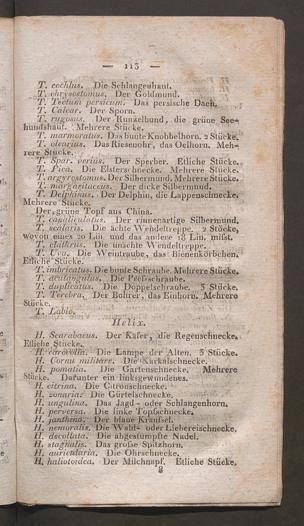 — 113 —
T. cochlus. Die Schlangenhaut.
T. chrysostomus. Der Goldmund.
T. Tectum persicum. Das persische Dach.
T. Calcar. Der Sporn.
T. rugosus. Der Runkelhund, die grüne See-
hundshaut. Mehrere Stücke.
T. marmoratus. Das bunte Knobbelhorn. 2 Stücke.
T. olearius. Das Riesenohr, das Oelhorn. Meh-
rere Stücke.
T. Spar. verius. Der Sperber. Etliche Stücke.
T. Pica. Die Elsterschnecke. Mehrere Stücke.
T. argyrostomus. Der Silbermund. Mehrere Stücke.
T. margaritaceus. Der dicke Silbermund.
T. Delphinus. Der Delphin, die Lappenschnecke.
Mehrere Stücke.
Der grüne Topf aus China.
T. canaliculatus. Der rinnenartige Silbermund.
T. scalaris. Die ächte Wendeltreppe. 2 Stücke,
wovon eines 20 Lin. und das andere 18 Lin. misst.
T. clathrus. Die unächte Wendeltreppe.
T. Uva. Die Weintraube, das Bienenkörbchen.
Etliche Stücke.
T. imbricatus. Die bunte Schraube. Mehrere Stücke.
T. acutangulus. Die
T. duplicatus. Die Doppelschraube. 3 Stücke.
T. Terebra. Der Bohrer, das Einhorn. Mehrere
Stücke.
T. Labio.
Helix.
H. Scarabaeus. Der Käfer, die Regenschnecke.
Etliche Stücke.
H. caracolla. Die Lampe der Alten. 3 Stücke.
H. Cornu militare. Die Karkalschnecke.
H. pomatia. Die Gartenschnecke. Mehrere
Stücke. Darunter ein linksgewundenes.
H. citrina. Die Citronschnecke.
H. zonaria. Die Gürtelschnecke.
H. ungulina. Das Jagd- oder Schlangenhorn.
H. perversa. Die linke Topfschnecke.
H. janthina. Der blaue Kräusel.
H. nemoralis. Die Wald- oder Liebereischnecke.
H. decollata. Die abgestumpfte Nadel.
H. stagnalis. Das große Spitzhorn.
H. auricularia. Die Ohrschnecke.
H. haliotoidea. Der Milchnapf. Etliche Stücke.
8